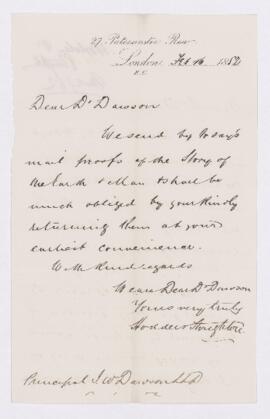 27 Paternoster Row
London Feb 16 188
E.C.
Dear Dr Dawson
We send by to day's
mail proofs of the Story of
the Earth & Man & shall be
much obliged by your kindly
returning them at your
earliest convenience.
With kind regards
We are Dear Dr Dawson
Yours very truly
Hodder & Stoughton
Principal J W Dawson LLD